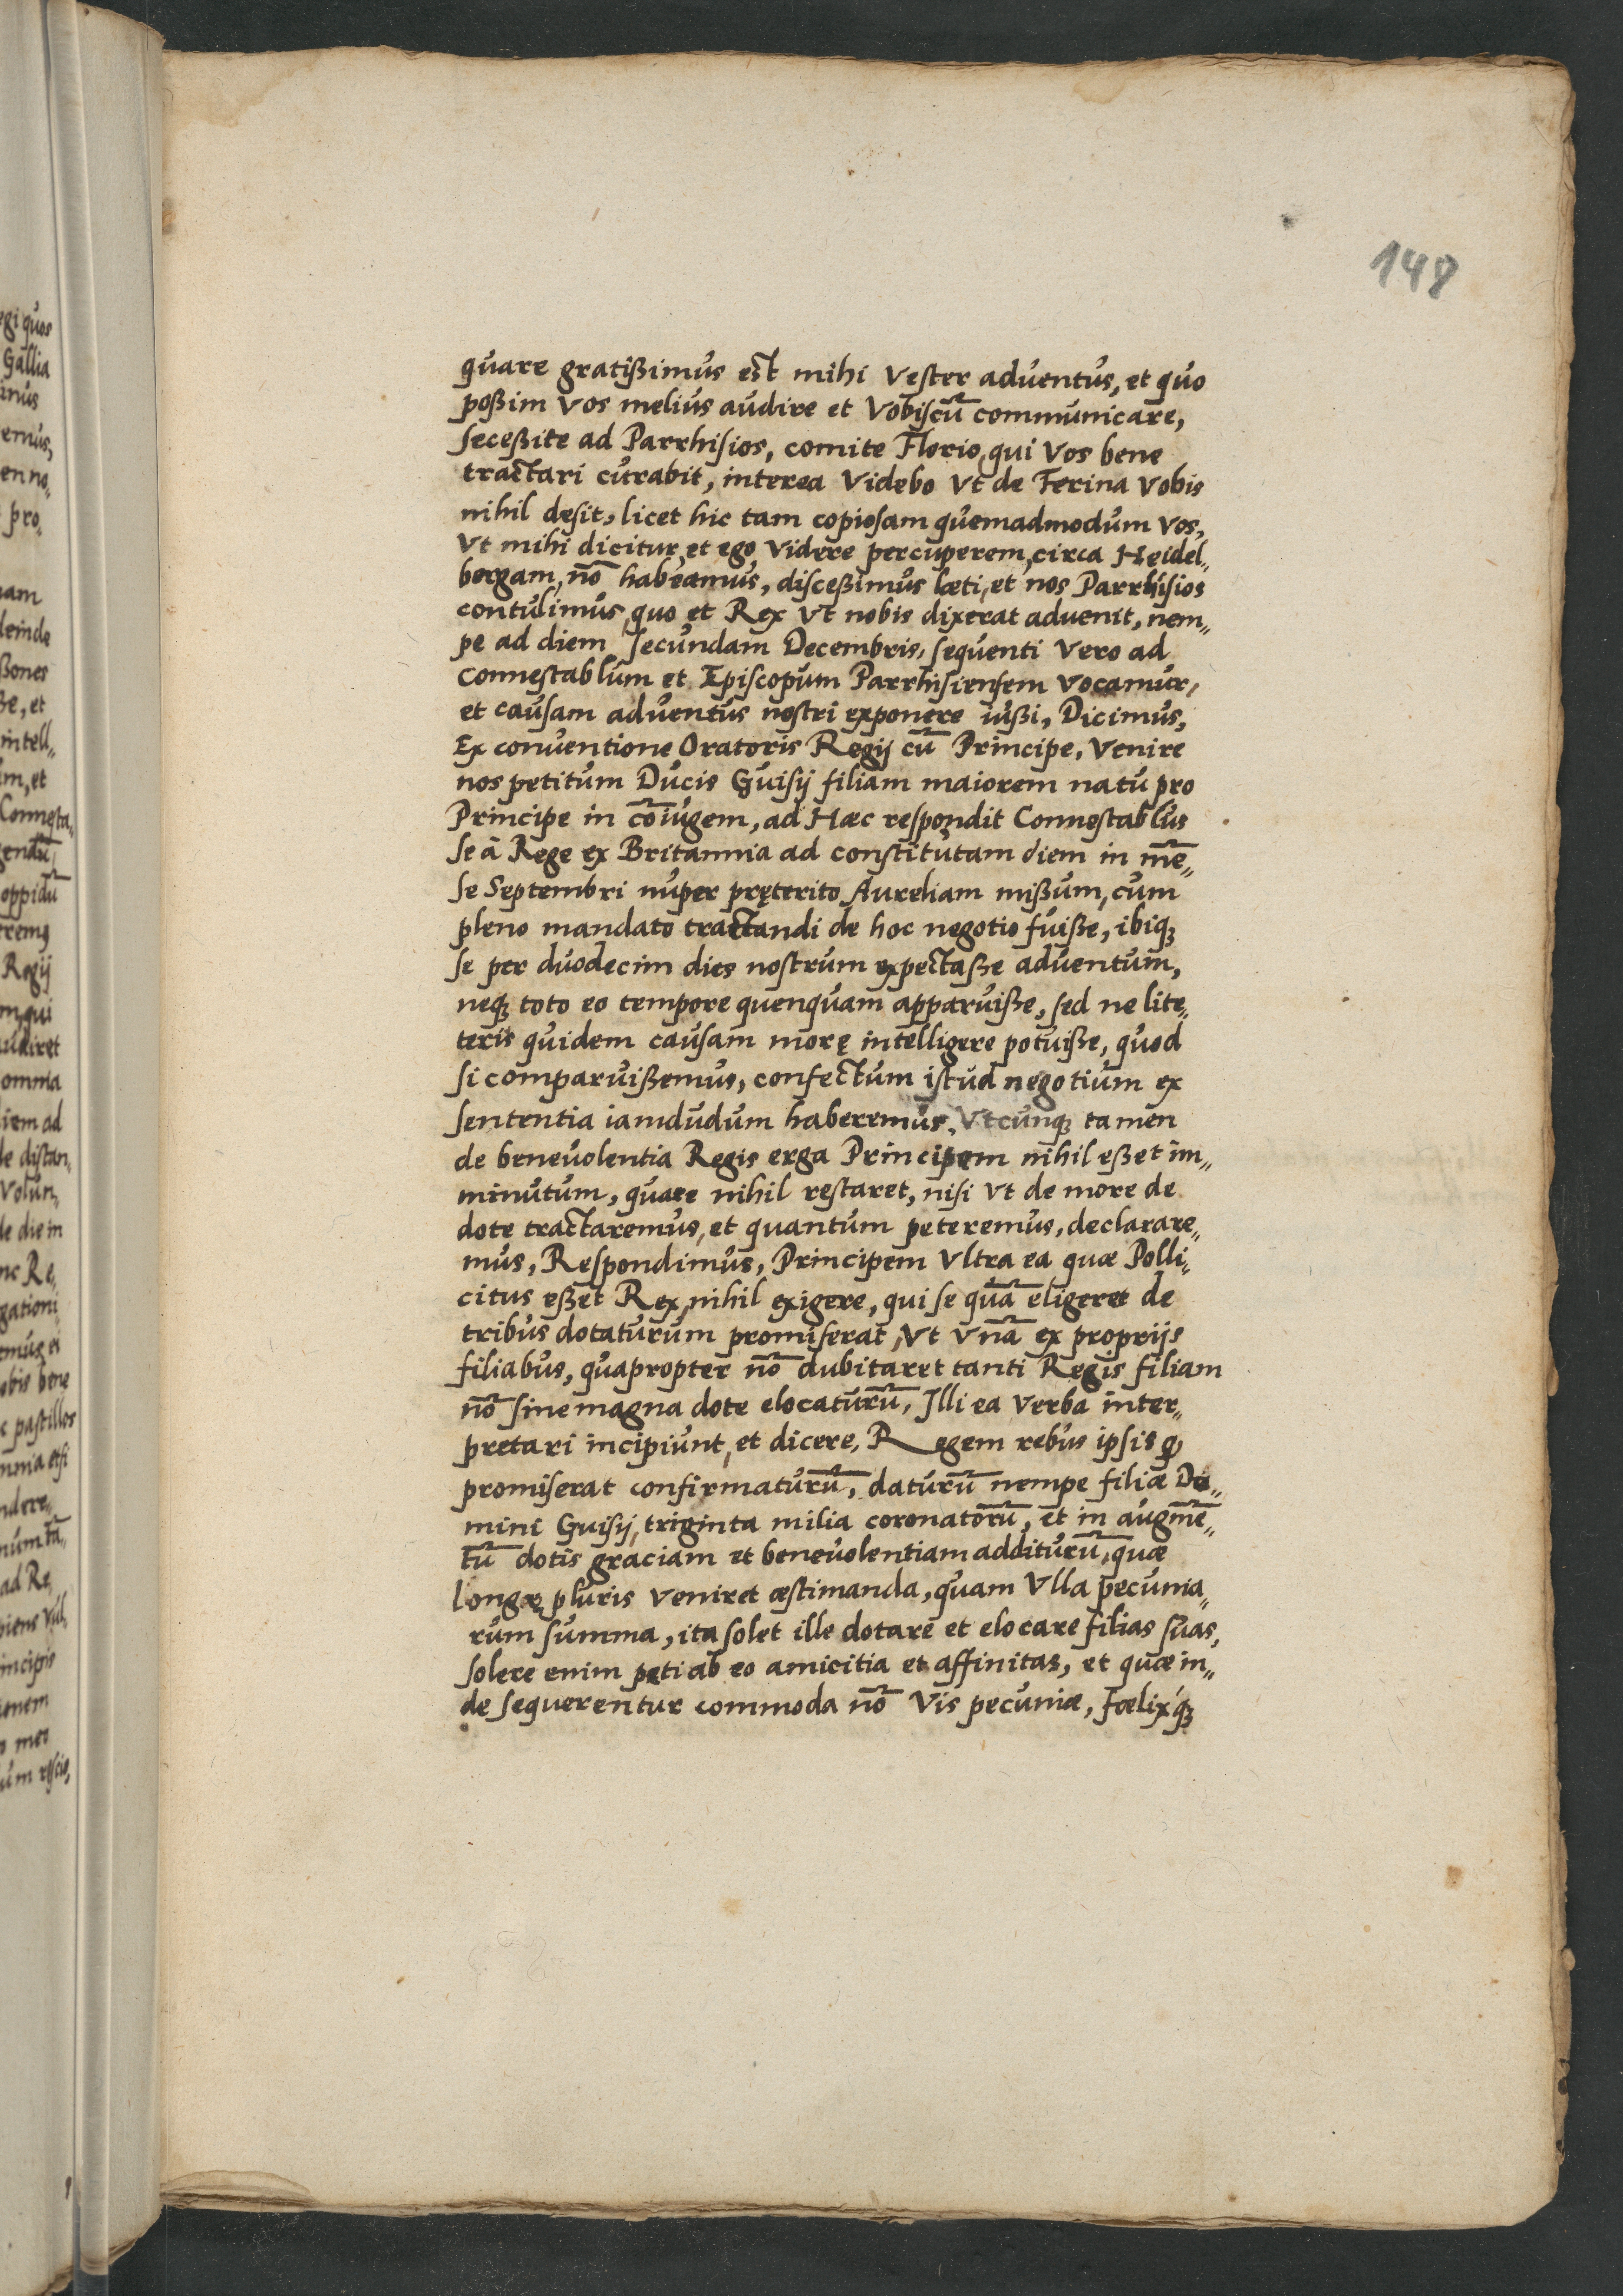 148
quare gratißimus est mihi Vester aduentus, et quo
poßim Vos melius audire et Vobiscū communicare,
seceßite ad Parrhisios, comite Florio, qui Vos bene
tractari curabit, interea Videbo Vt de Ferina Vobis
nihil desit, licet hic tam copiosam quemadmodum Vos,
Vt mihi dicitur, et ego Videre percuperem, circa Heidel„
bergam, nō habeamus, disceßimus læti, et nos Parrhisios
contulimus, quo et Rex Vt nobis dixerat aduenit, nem„
pe ad diem secundam Decembris, sequenti Vero ad
Connestablum et Episcopum Parrhisiensem Vocamur,
et causam aduentus nostri exponere iußi, Dicimus,
Ex conuentione Oratoris Regij cū Principe, Venire
nos petitum Ducis Guisij filiam maiorem natu pro
Principe in cōiugem, ad Hæc respondit Connestablus
se à Rege ex Britannia ad constitutam diem in mē„
se Septembri nuper pręterito Aureliam mißum, cum
pleno mandato tractandi de hoc negotio fuiße, ibiqꝫ
se per duodecim dies nostrum expectaße aduentum,
neqꝫ toto eo tempore quenquam apparuiße, sed ne lite„
teris quidem causam morę intelligere potuiße, quod
si comparuißemus, confectum istud negotium ex
sententia iamdudum haberemus, Vtcunqꝫ tamen
de beneuolentia Regis erga Principem nihil eßet im„
minutum, quare nihil restaret, nisi Vt de more de
dote tractaremus, et quantum peteremus, declarare„
mus, Respondimus, Principem Vltra ea quæ Polli„
citus eßet Rex, nihil exigere, qui se quā eligeret de
tribus dotaturum promiserat, Vt Vnā ex proprijs
filiabus, quapropter nō dubitaret tanti Regis filiam
nō sine magna dote elocaturū, Illi ea Verba inter„
pretari incipiunt, et dicere, Regem rebus ipsis ꝙ
promiserat confirmaturū, daturū nempe filiæ Do„
mini Guisij, triginta milia coronatorū, et in augmē„
tū dotis graciam et beneuolentiam additurū, quæ
longę pluris Veniret æstimanda, quam Vlla pecunia„
rum summa, ita solet ille dotare et elocare filias suas,
solere enim peti ab eo amicitia et affinitas, et quæ in„
de sequerentur commoda nō Vis pecuniæ, Fœlixqꝫ